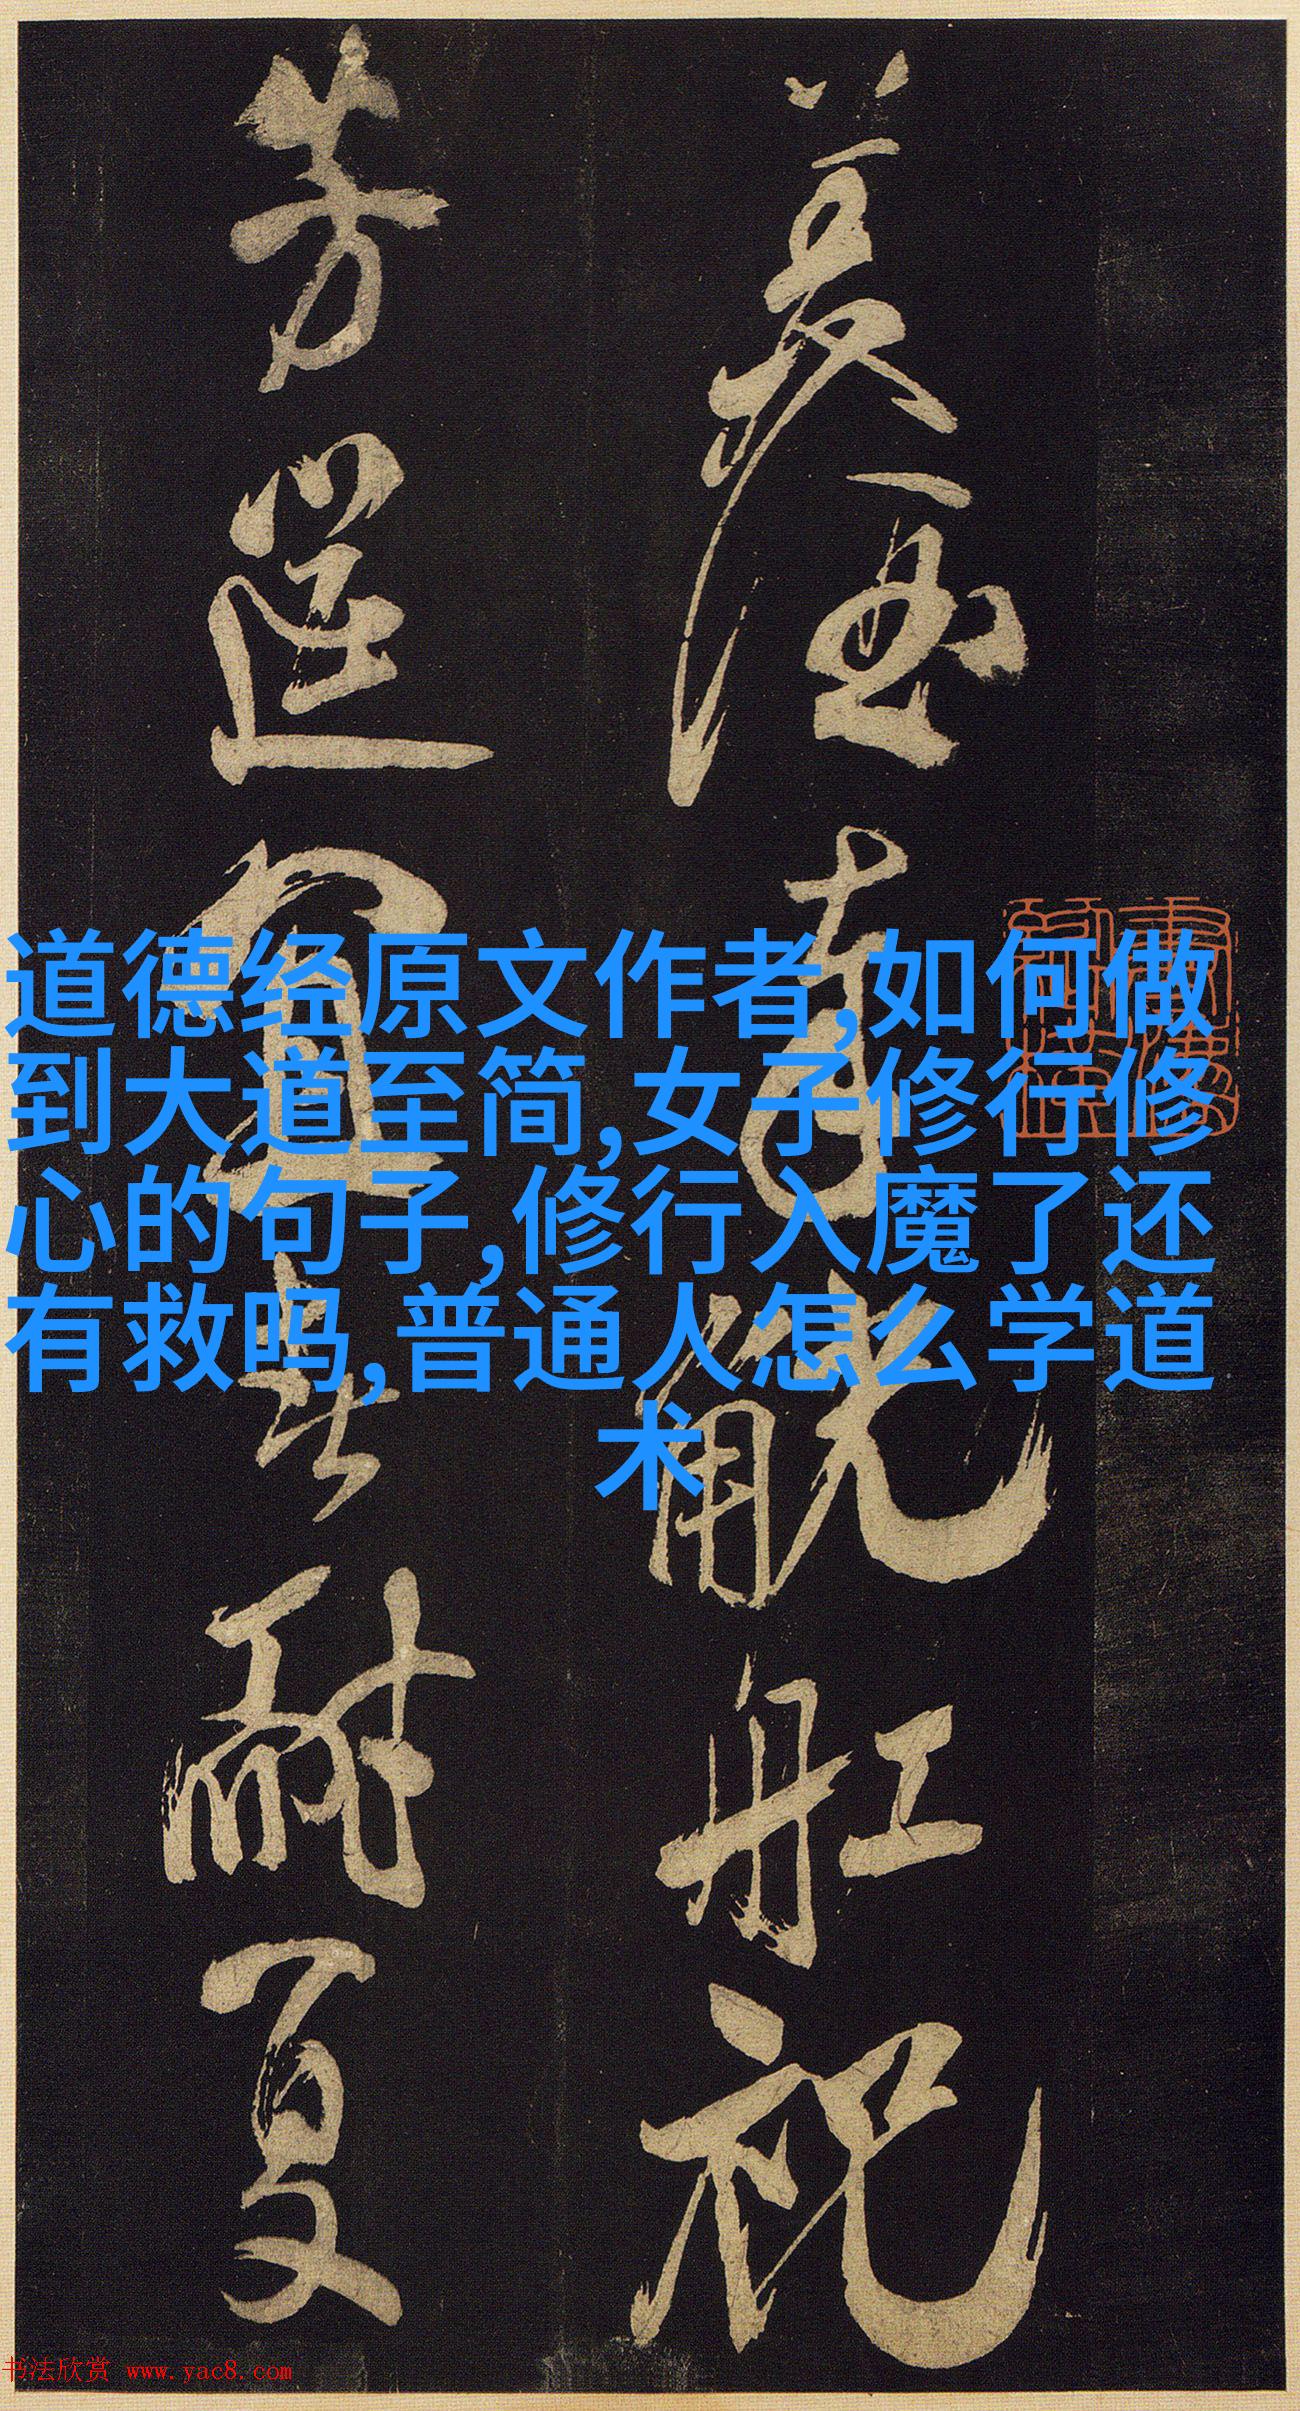 美酒有觥舡祝
芳筵宜
耐夏
道德经原文作者,如何做
到大道至简,女子修行修
心的句子,修行入魔了还
有救吗,普通人怎么学道
术
书法欣赏 www.yac8.com